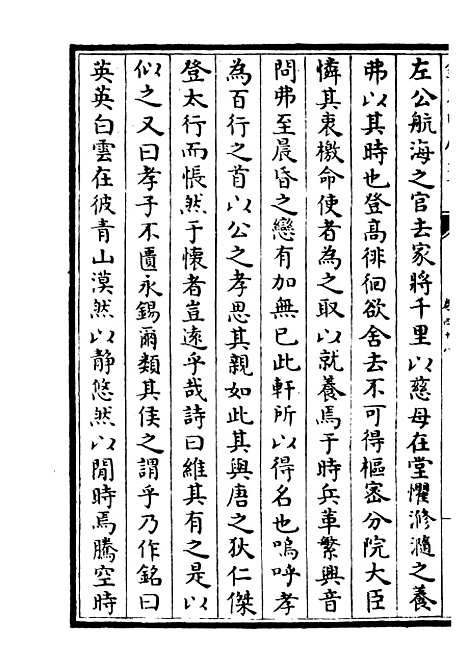 左公航海之官去家將千里以慈母在堂懼滫瀡之養
弗以其時也登髙徘徊欲舍去不可得樞密分院大臣
憐其衷檄命使者為之取以就養焉于時兵革繁興音
問弗至晨昏之戀有加無已此軒所以得名也嗚呼孝
為百行之首以公之孝思其親如此其與唐之狄仁傑
登太行而悵然于懐者豈逺乎哉詩曰維其有之是以
似之又曰孝子不匱永錫爾類其侯之謂乎乃作銘曰
英英白雲在彼青山漠然以静悠然以閒時焉騰空時